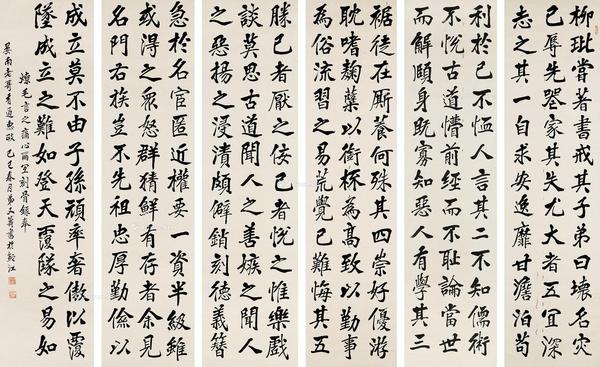 柳玭嘗著書戒其子弟曰壞名灾
己辱先喪家其失尤大者五宜深
志之其一自求安逸靡甘澹泊苟
利於己不恤人言其二不知儒術
不悅古道懵前經而不恥論當世
而解頤身既寡知惡人有學其三
裾徒在厮養何殊其四崇好優游
耽嗜麹蘖以銜杯為高致以勤事
為俗流習之易荒覺已難悔其五
勝己者厭之佞己者悅之惟樂戲
談莫思古道聞人之善嫉之聞人
之惡揚之浸漬頗僻銷刻德義簪
急於名宦匿近權要一資半級雖
或得之衆怒群猜鮮有存者余見
名門右族豈不先祖忠厚勤儉以
成立莫不由子孫頑率奢傲以覆
墜成立之難如登天覆隊之易如
燎毛言之痛心爾宜刻骨錄奉
己巳春月弟